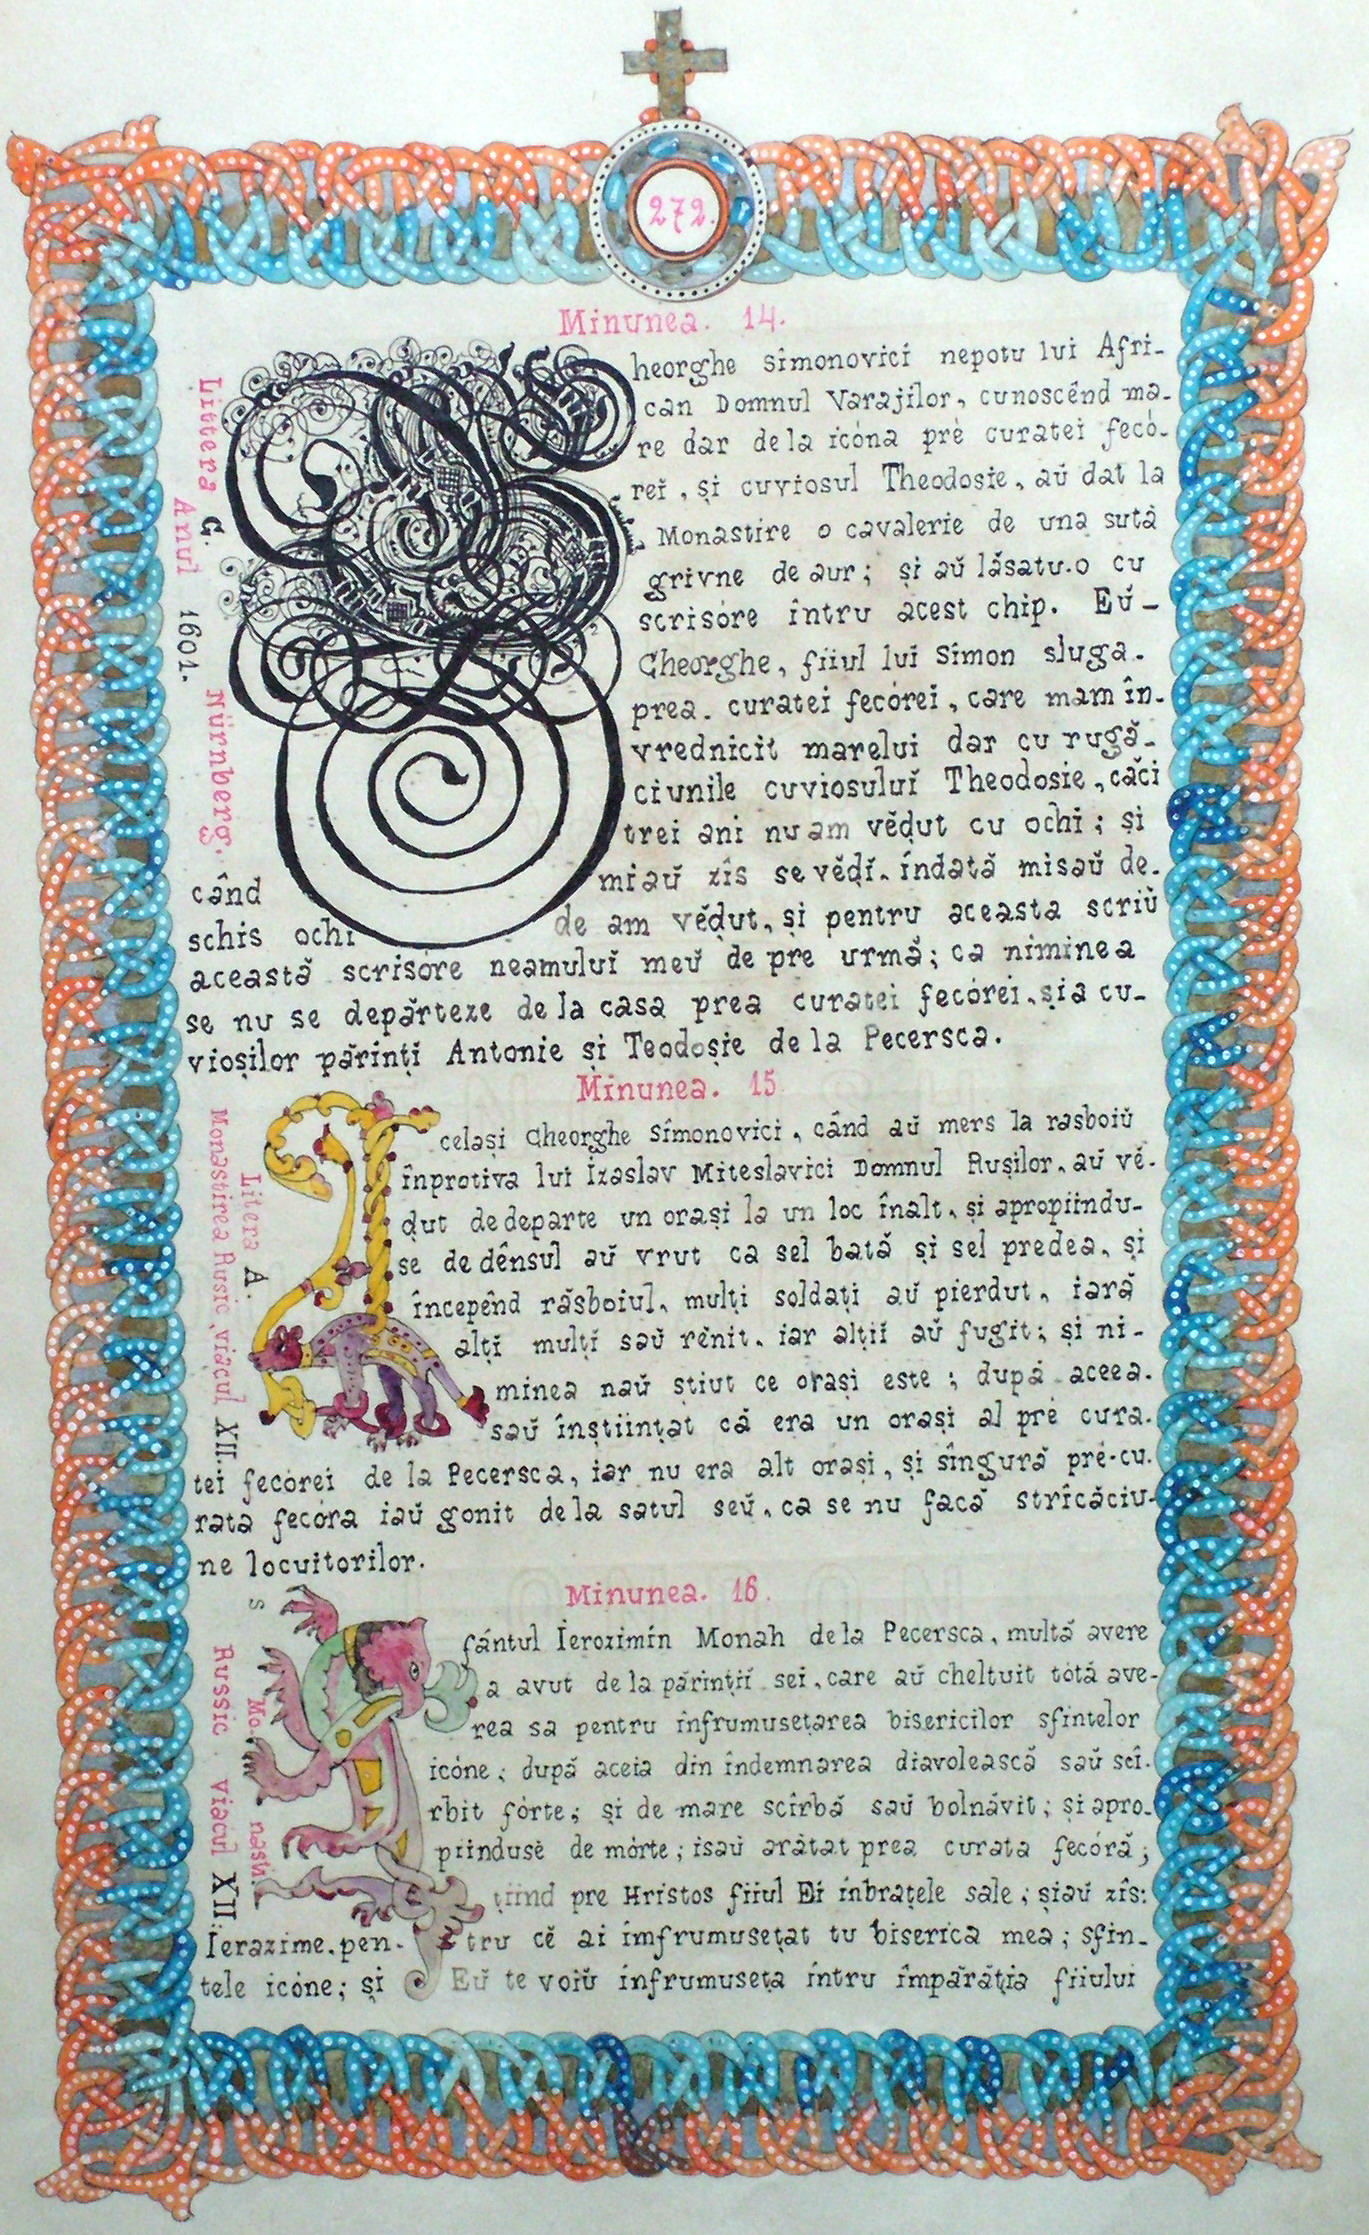 272.
Minunea. 14.
Littera G.
Anul 1601.
Nürnberg.
heorghe Simonovici nepotu lui Afri-
can Domnul Varajilor, cunoscênd ma-
re dar de la icóna pré curatei fecó-
rei, și cuviosul Theodosie, aŭ dat la
Monastire o cavalerie de una sută
grivne de aur; și aŭ lăsatu-o cu
scrisóre întru acest chip. Eŭ-
Gheorghe, fiiul lui Simon sluga-
prea. curatei fecórei, care mam în-
vrednicit marelui dar cu rugă-
ciunile cuviosuluĭ Theodosie, căci
trei ani nu am vĕḍut cu ochi; și
când miaŭ zîs se vĕḍĭ. îndată misaŭ de-
schis ochi de am vĕḍut, și pentru aceasta scriŭ
această scrisóre neamuluĭ meŭ de pre urmă; ca niminea
se nu se depărteze de la casa prea curatei fecórei, șia cu-
vioșilor părințĭ Antonie și Teodosie de la Pecersca.
Minunea. 15
Litera A.
Monastirea Rusic, viacul XII.
celași Gheorghe Sîmonovici, când aŭ mers la rasboiŭ
înprotiva lui Izaslav Miteslavici Domnul Rușilor, aŭ vĕ-
ḍut de departe un orași la un loc înalt, și apropiindu-
se de dênsul aŭ vrut ca sel bată și sel predea, și
începênd răsboiul, mulți soldați aŭ pierdut, iară
alțĭ mulțĭ saŭ rênit, iar alțiĭ aŭ fugit; și ni-
minea naŭ știut ce orași este; după aceea.
saŭ înștiințat că era un orași al pré cura-
tei fecórei de la Pecersca, iar nu era alt orași, și sîngură pré-cu-
rata fecóra iaŭ gonit de la satul seŭ, ca se nu facă strîcăciu-
ne locuitorilor.
Minunea. 16.
S
Russic viacul XII.
fântul Ierozimin Monah de la Pecersca, multă avere
a avut de la părințiĭ sei, care aŭ cheltuit tótă ave-
rea sa pentru înfrumusețarea bisericilor sfintelor
icóne; după aceia din îndemnarea diavolească saŭ scî-
rbit fórte; și de mare scîrbă saŭ bolnăvit; și apro-
piindusé de mórte; isaŭ arătat prea curata fecóră;
țiind pre Hristos fiiul Ei înbrațele sale; șiaŭ zîs:
Ierazime, pen- tru cĕ ai împfrumusețat tu biserica mea; sfin-
tele icóne; și Eŭ te voiŭ înfrumuseța întru împărăția fiiului